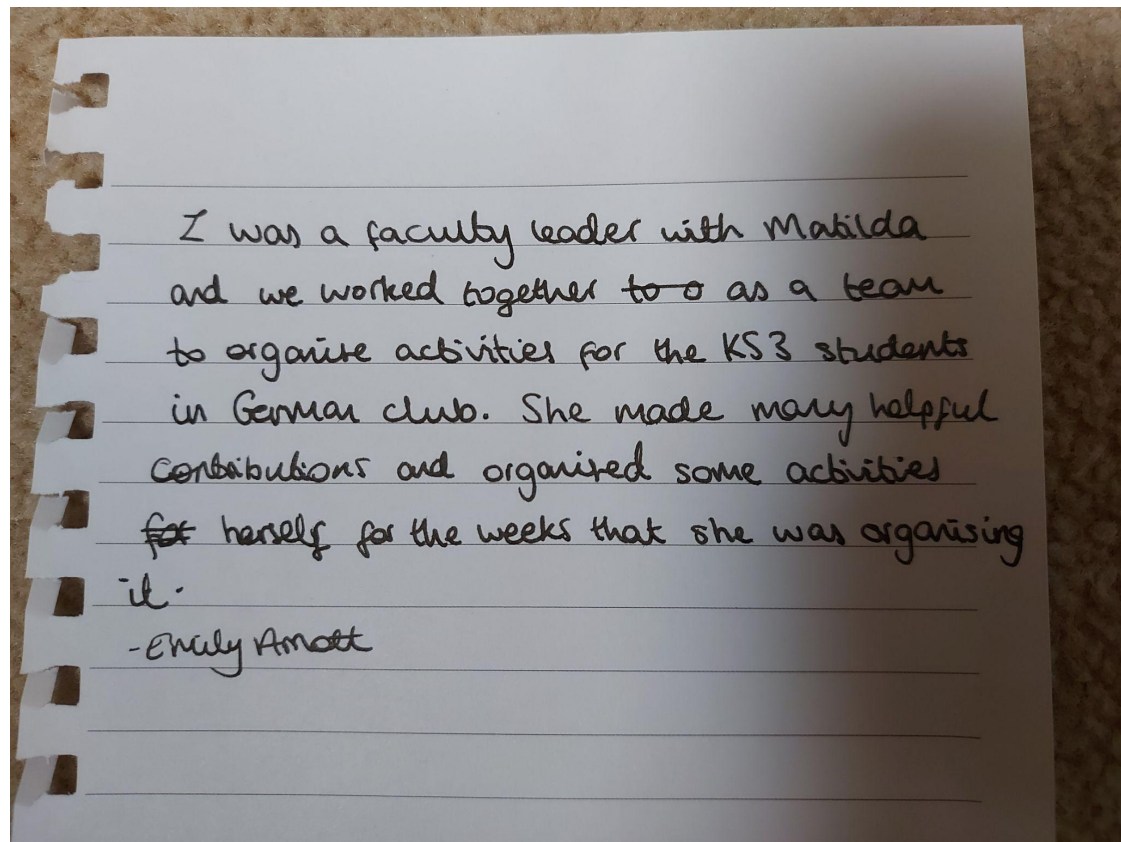 I was a faculty leader with Matilda
and we worked together ~~to o~~ as a team
to organise activities for the KS3 students
in German club. She made many helpful
contributions and organised some activities
~~for~~ herself for the weeks that she was organising
it.
-Emily Arnott